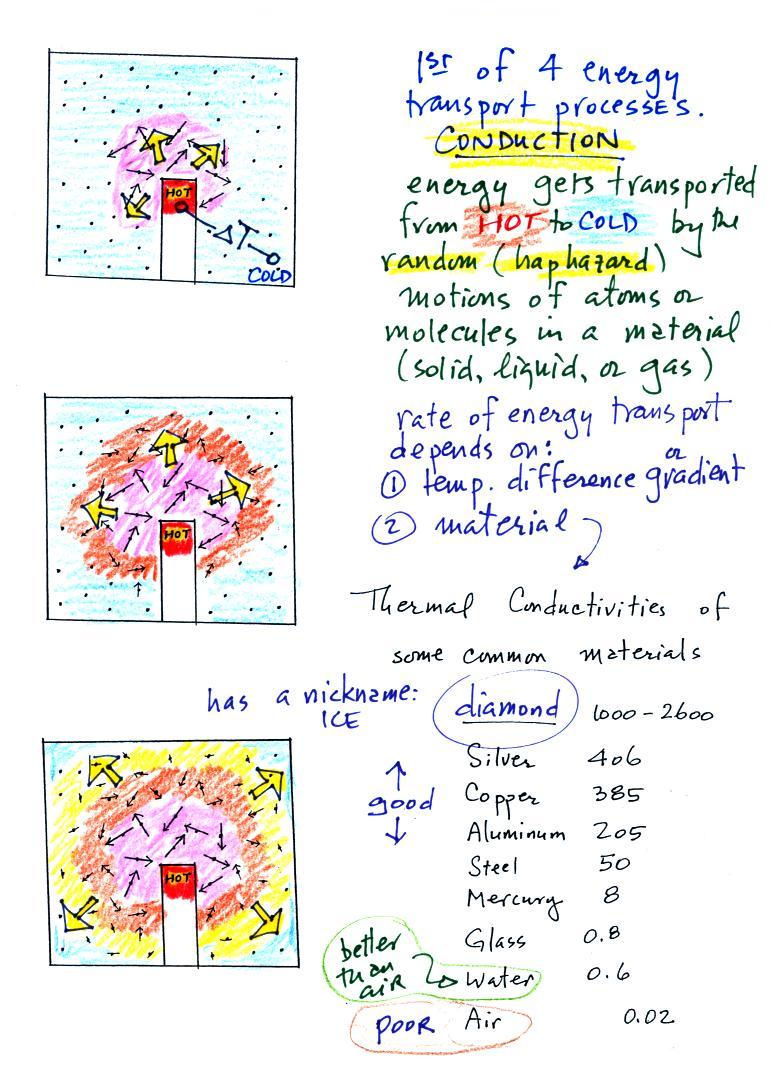 1st of 4 energy
transport processes.
CONDUCTION
energy gets transported
from HOT to COLD by the
random (haphazard)
motions of atoms or
molecules in a material
(solid, liquid, or gas)
HOT
ΔT
COLD
rate of energy transport
depends on:
① temp. difference or gradient
② material
HOT
Thermal Conductivities of
some common materials
has a nickname:
ICE
diamond 1000 - 2600
Silver 406
good
Copper 385
Aluminum 205
Steel 50
Mercury 8
Glass 0.8
better
than
air
Water 0.6
POOR Air 0.02
HOT